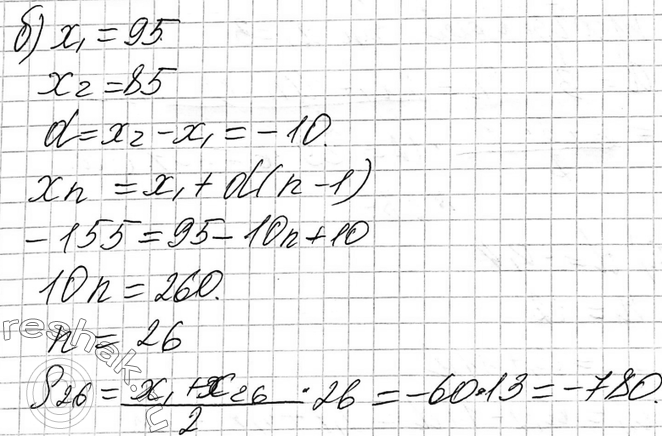 б) x₁ = 95
x₂ = 85
d = x₂ - x₁ = -10.
xn = x₁ + d(n-1)
-155 = 95 - 10n + 10
10n = 260.
n = 26
S₂₆ = (x₁ + x₂₆)/2 · 26 = -60·13 = -780.
reshak.ru